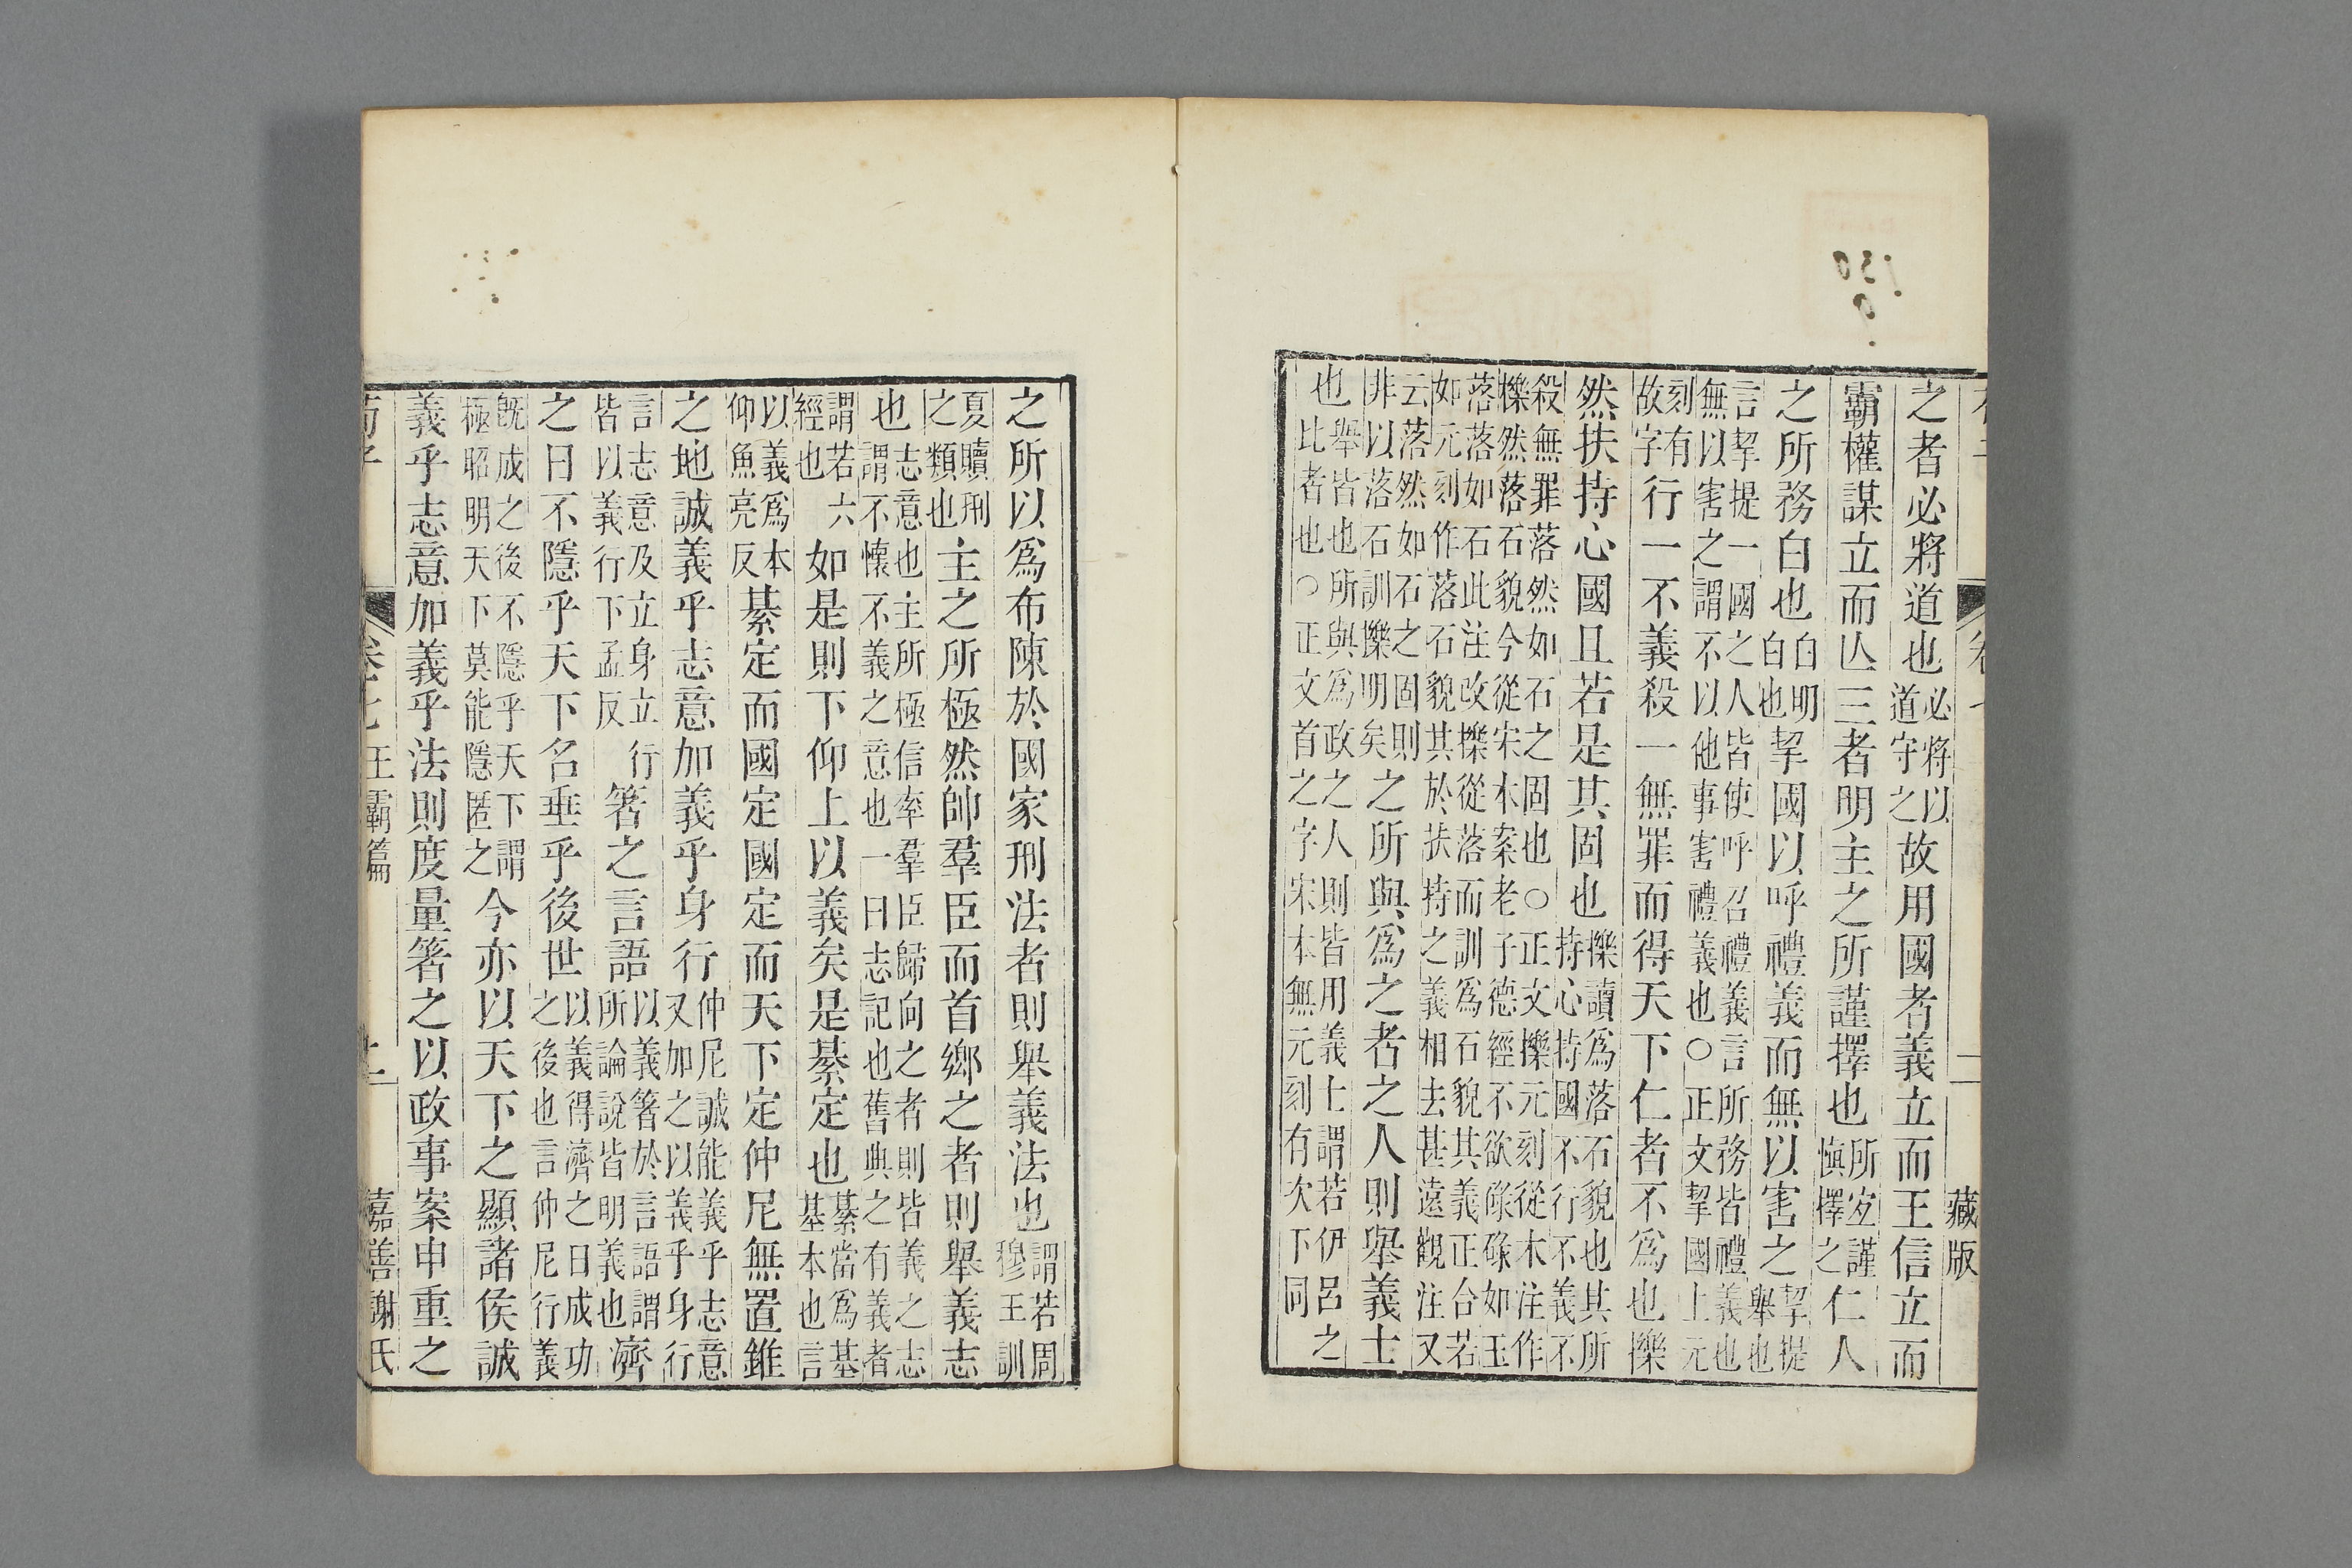 二 藏版
之者必將道也必將以道守之故用國者義立而王信立而
霸權謀立而亾三者明主之所謹擇也所宜謹慎擇之仁人
之所務白也白明白也挈國以呼禮義而無以害之挈提舉也
言挈提一國之人皆使呼召禮義言所務皆禮義也
無以害之謂不以他事害禮義也○正文挈國上元
刻有故字行一不義殺一無罪而得天下仁者不爲也擽
然扶持心國且若是其固也擽讀爲落石貌也其所持心持國不行不義不
殺無罪落然如石之固也○正文擽元刻從木注作
擽然落石貌今從宋本案老子德經不欲碌碌如玉
落落如石此注改擽從落而訓爲石貌其義正合若
如元刻作落石貌其於扶持之義相去甚遠觀注又
云落然如石之固則非以落石訓擽明矣之所與爲之者之人則舉義士
也舉皆也所與爲政之人則皆用義士謂若伊呂之比者也○正文首之字宋本無元刻有次下同
之所以爲布陳於國家刑法者則舉義法也謂若周穆王訓
夏贖刑之類也主之所極然帥羣臣而首鄉之者則舉義志
也志意也主所極信率羣臣歸向之者則皆義之志謂不懷不義之意也一曰志記也舊典之有義者
謂若六經也如是則下仰上以義矣是綦定也綦當爲基基本也言
以義爲本仰魚亮反綦定而國定國定而天下定仲尼無置錐
之地誠義乎志意加義乎身行仲尼誠能義乎志意又加之以義乎身行
言志意及立身立行皆以義行下孟反箸之言語以義箸於言語謂所論說皆明義也濟
之日不隱乎天下名垂乎後世以義得濟之日成功之後也言仲尼行義
旣成之後不隱乎天下謂極昭明天下莫能隱匿之今亦以天下之顯諸侯誠
義乎志意加義乎法則度量箸之以政事案申重之
荀子 卷七王霸篇 嘉善謝氏